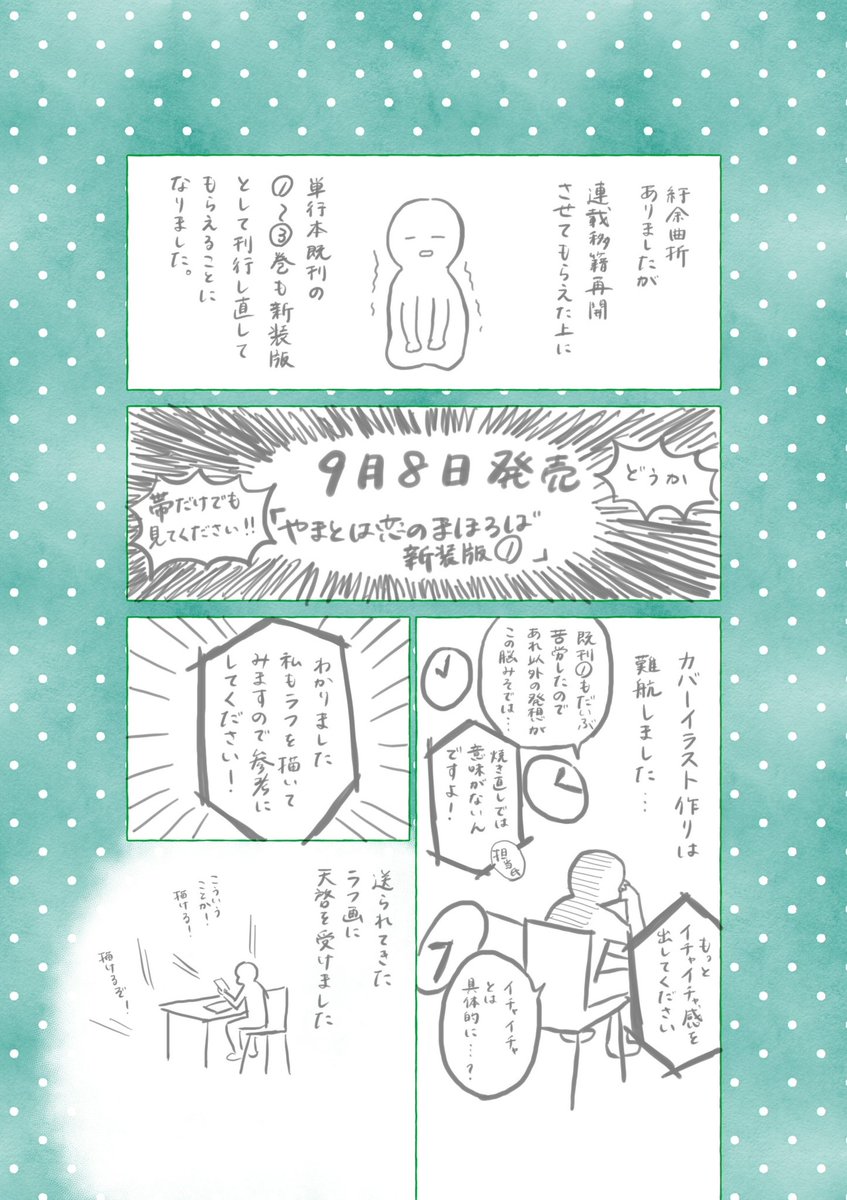 紆余曲折
ありましたが
連載移籍再開
させてもらえた上に
単行本既刊の
①〜③巻も新装版
として刊行し直して
もらえることに
なりました。
どうか
9月8日発売
「やまとは恋のまほろば
新装版①」
帯だけでも
見てください!!
カバーイラスト作りは
難航しました…
既刊①もだいぶ
苦労したので
あれ以外の発想が
この脳みそでは…
焼き直しでは
意味がないん
ですよ!
担当氏
もっと
イチャイチャ感を
出してください
イチャイチャ
とは
具体的に…?
わかりました
私もラフを描いて
みますので参考に
してください!
送られてきた
ラフ画に
天啓を受けました
こういう
ことか!
描ける!
描けるぞ!